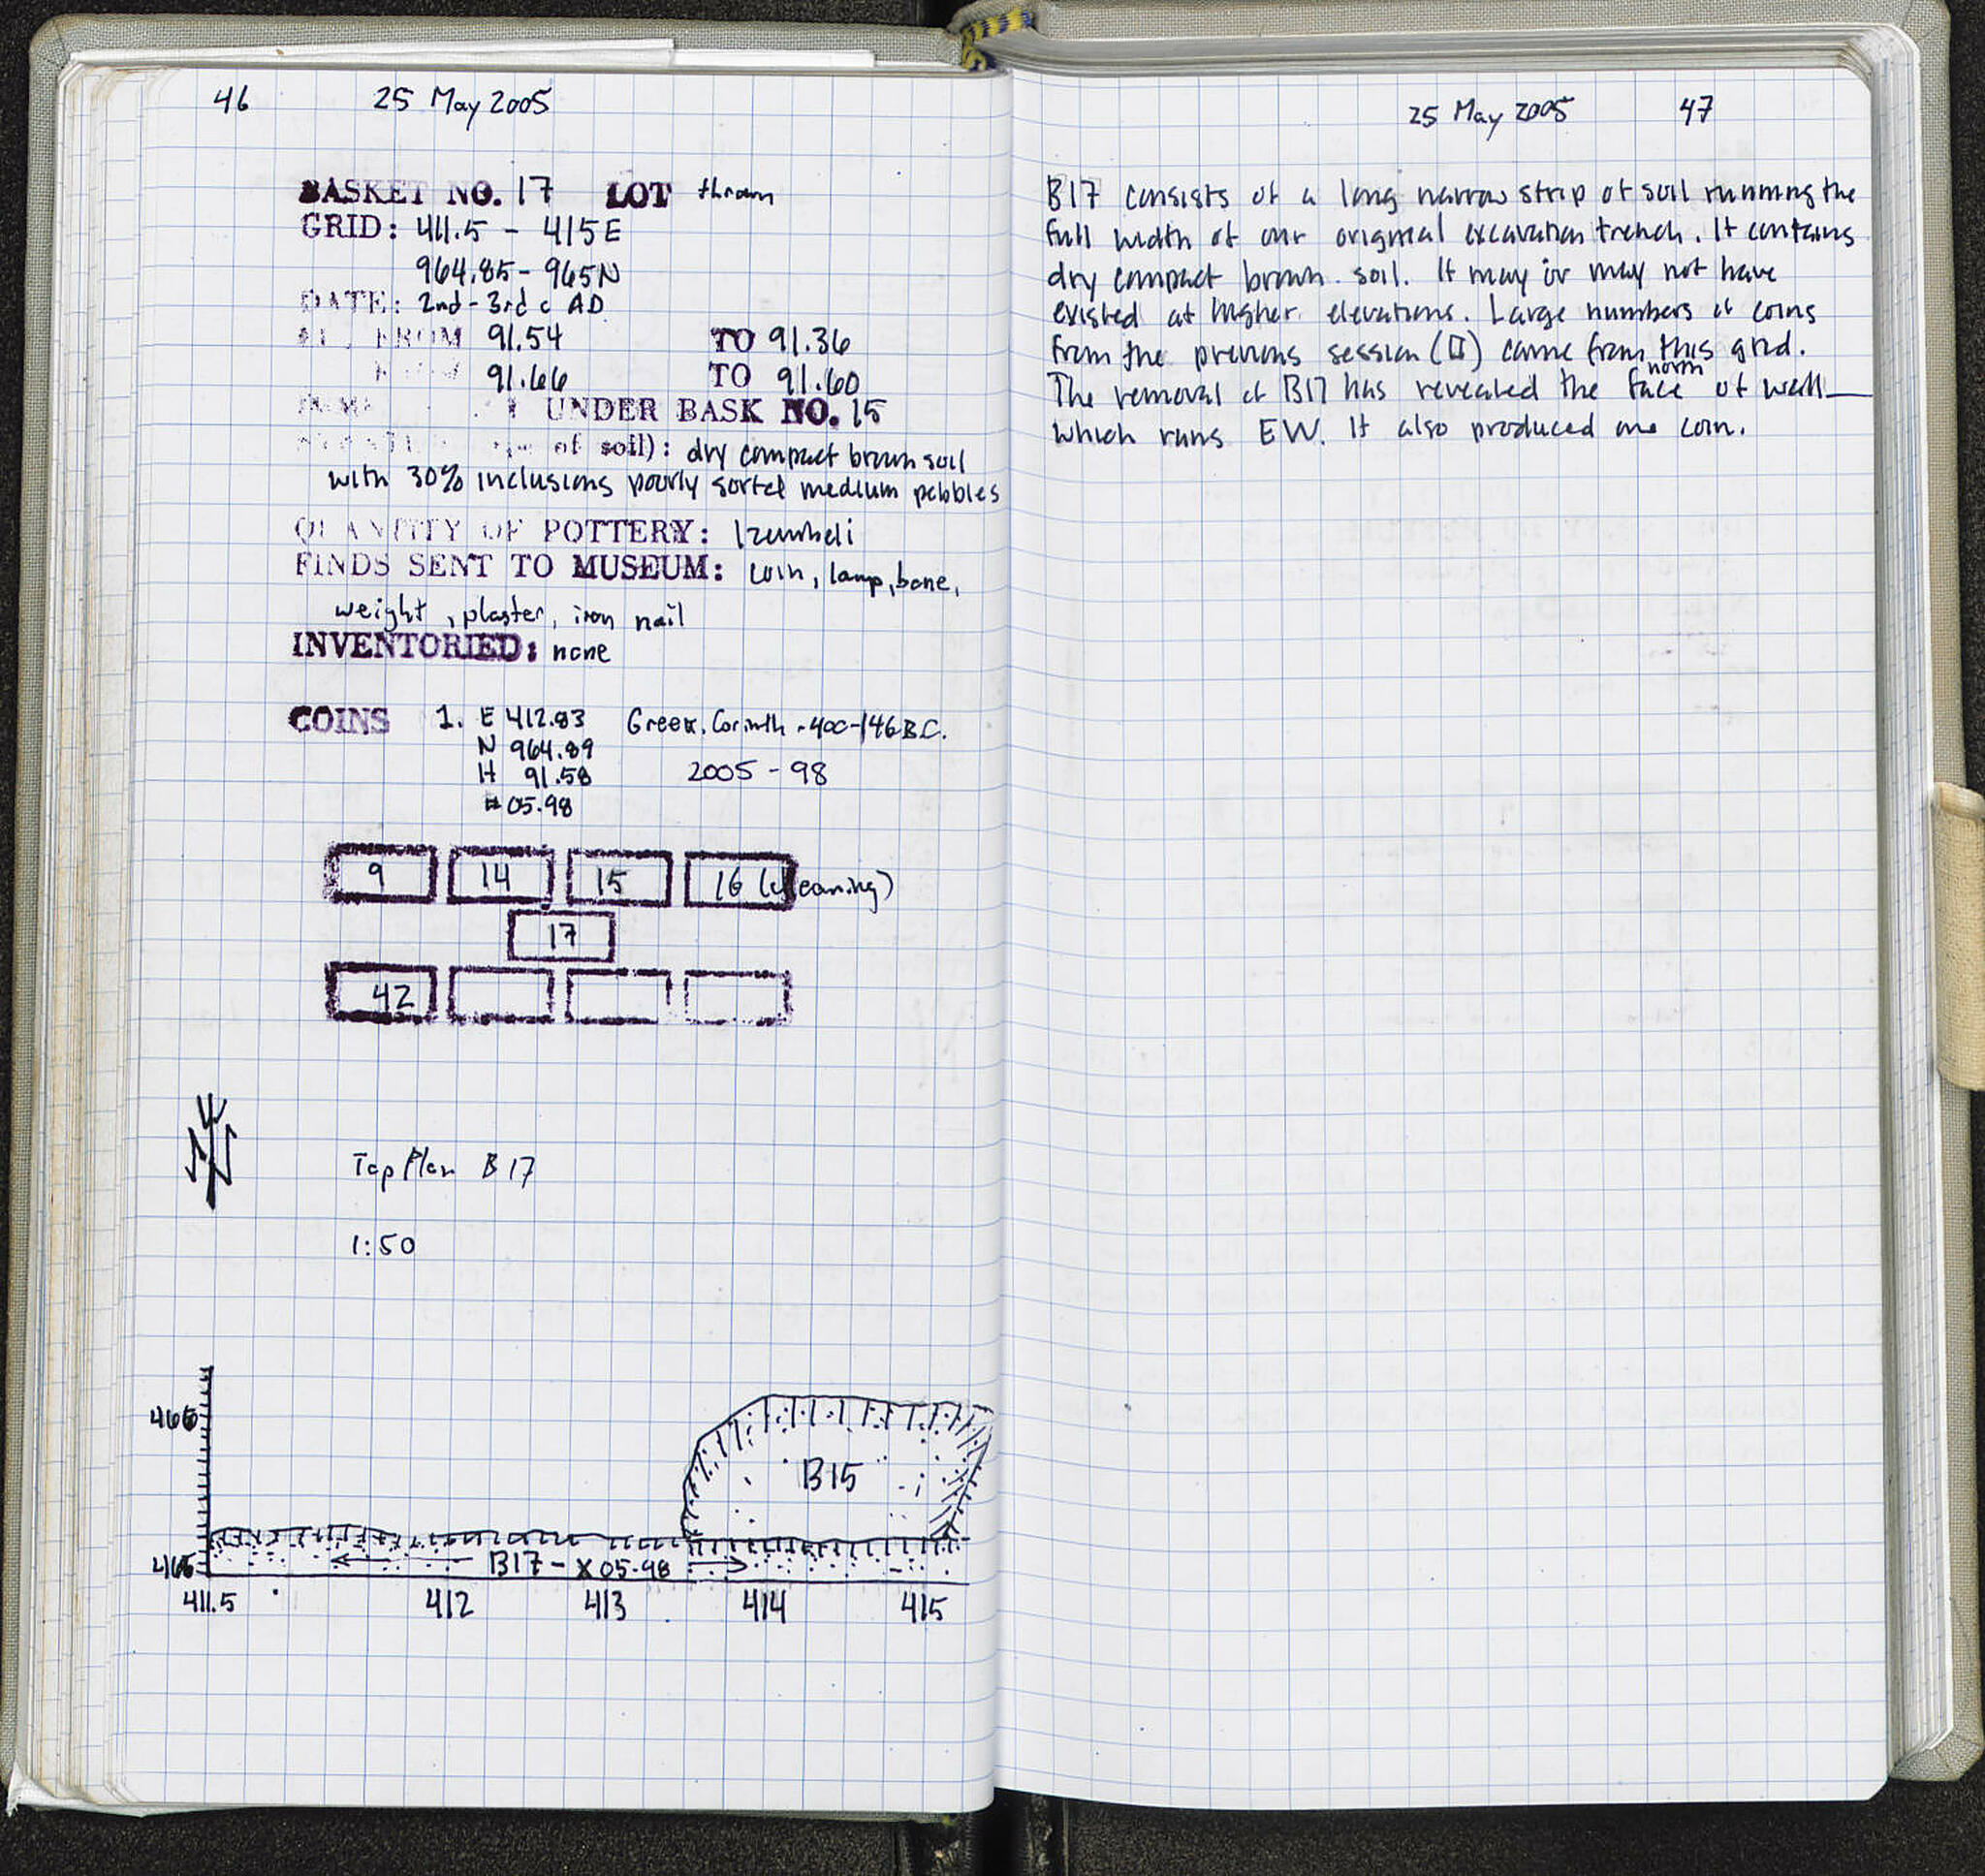 46 25 May 2005
BASKET NO. 17 LOT thrown
GRID: 411.5 - 415E
964.85 - 965N
DATE: 2nd - 3rd c AD
FROM 91.54 TO 91.36
91.66 TO 91.60
UNDER BASK NO. 15
of soil): dry compact brown soil
with 30% inclusions poorly sorted medium pebbles
QUANTITY OF POTTERY: 1 zembeli
FINDS SENT TO MUSEUM: coin, lamp, bone,
weight, plaster, iron nail
INVENTORIED: none
COINS 1. E 412.83 Greek, Corinth - 400-146 B.C.
N 964.89
H 91.58 2005 - 98
# 05.98
9 14 15 16 (cleaning)
17
42
Top Plan B17
1:50
B15
B17 - X 05-98
411.5 412 413 414 415
25 May 2005 47
B17 consists of a long narrow strip of soil running the
full width of our original excavation trench. It contains
dry compact brown soil. It may or may not have
existed at higher elevations. Large numbers of coins
from the previous session (II) came from this grid.
The removal of B17 has revealed the north face of wall
which runs EW. It also produced one coin.